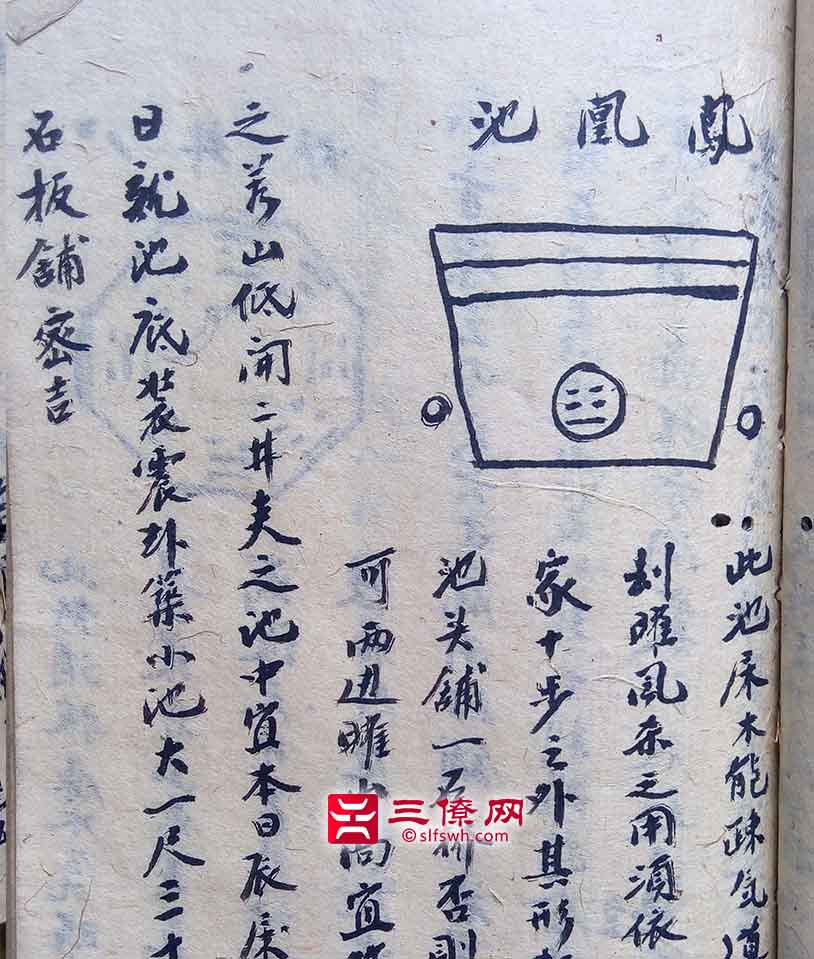 鳳凰池
此池屎木能疎气道
刦曜風杀之用須依
家十步之外其形
池头舖一石 否則
可两边曜 尚宜
之若山低開二井夫之池中宜本日辰屎
日就池底装震卦築小池大一尺三寸
石板舖密吉
三僚网
©slfswh.com